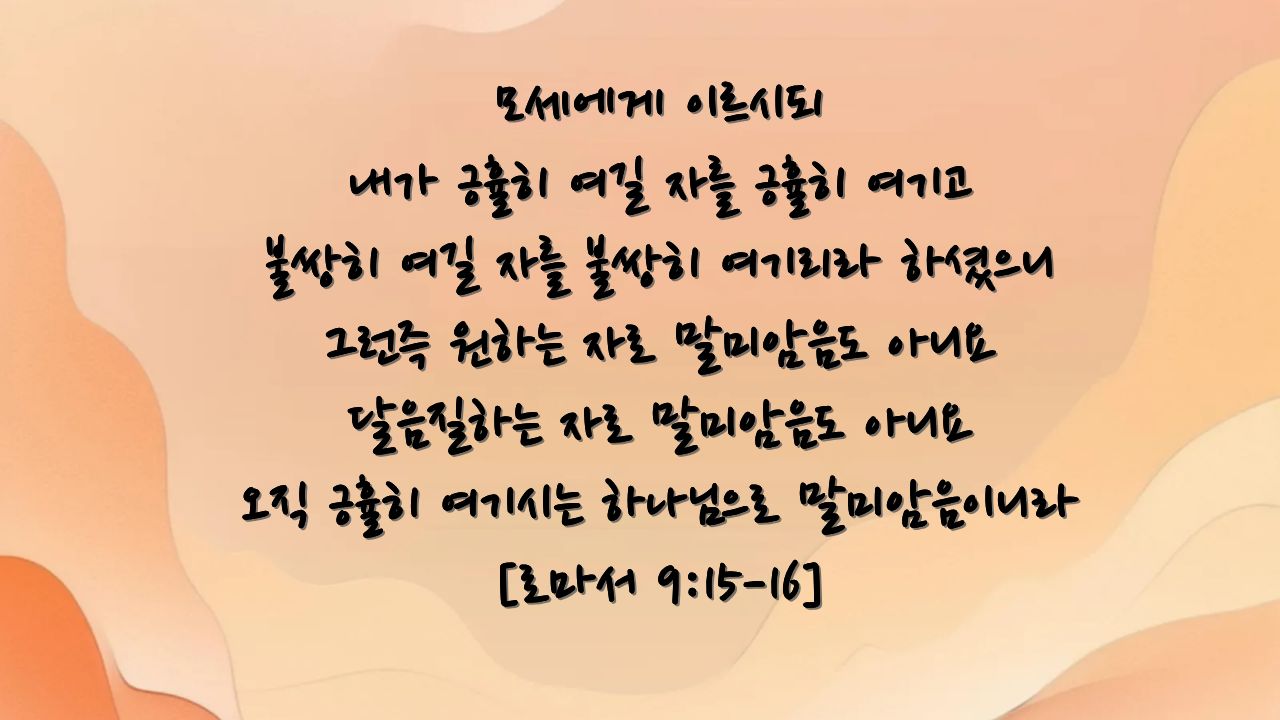 모세에게 이르시되
내가 긍휼히 여길 자를 긍휼히 여기고
불쌍히 여길 자를 불쌍히 여기리라 하셨으니
그런즉 원하는 자로 말미암음도 아니요
달음질하는 자로 말미암음도 아니요
오직 긍휼히 여기시는 하나님으로 말미암음이니라
[로마서 9:15-16]